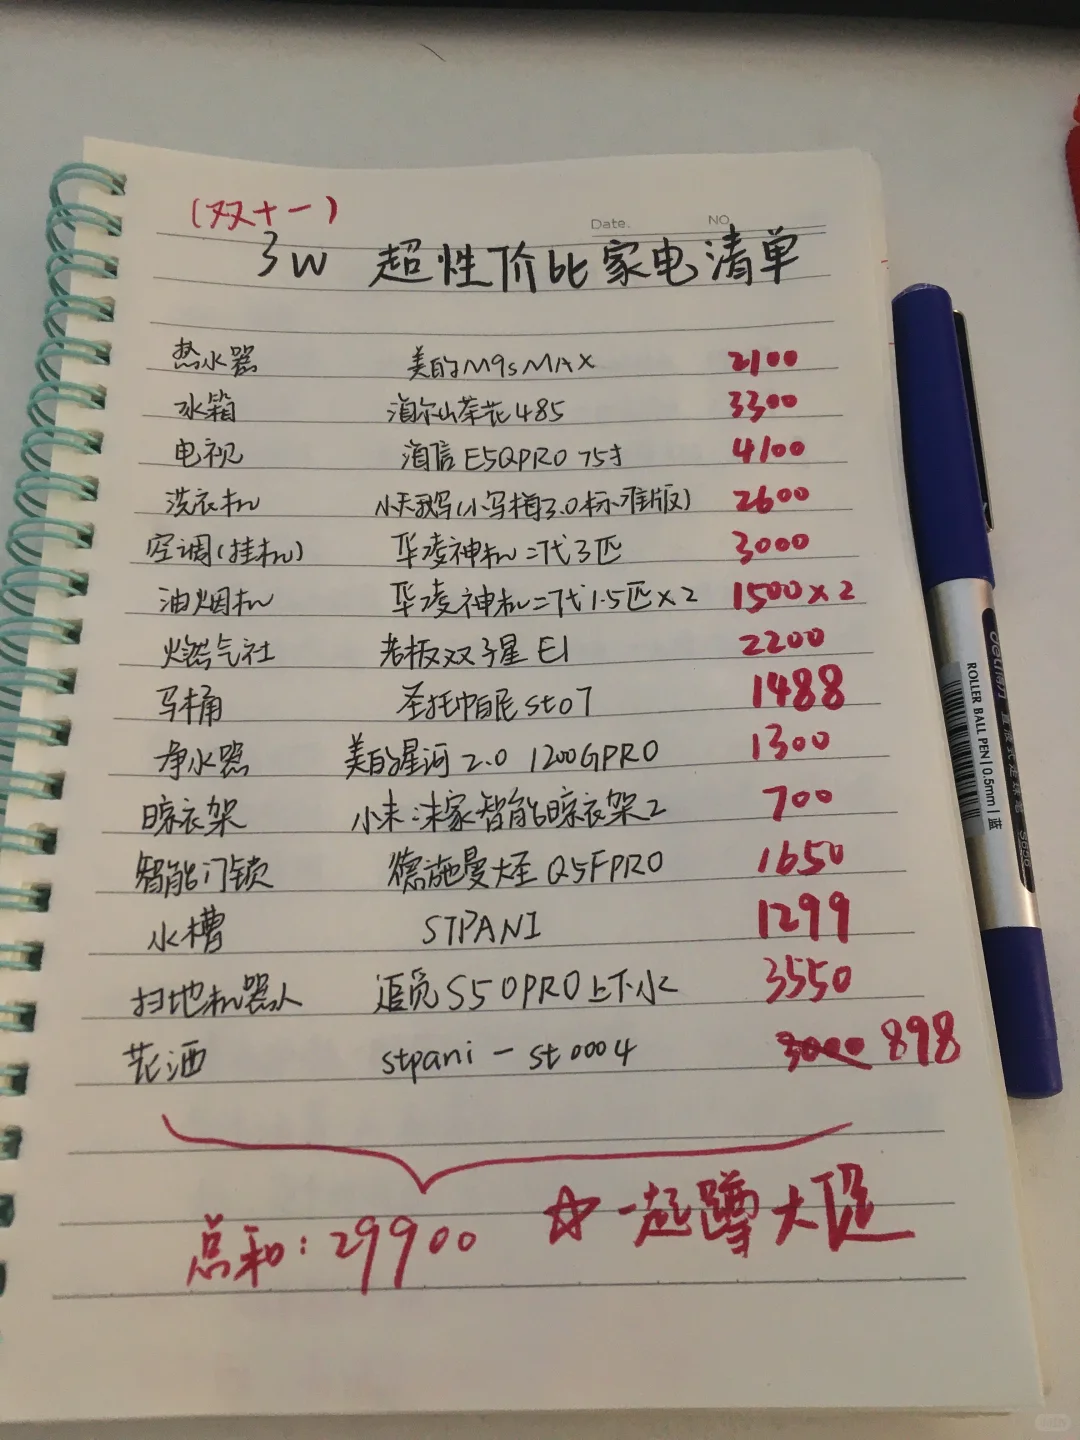 (双十一)
Date. NO.
3W 超性价比家电清单
热水器 美的M9sMAX 2100
冰箱 海尔山茶花485 3300
电视 海信E5QPRO 75寸 4100
洗衣机 小天鹅(小乌梅3.0标准版) 2600
空调(挂机) 华凌神机二代3匹 3000
油烟机 华凌神机二代1.5匹×2 1500×2
燃气灶 老板双子星E1 2200
马桶 圣托帕尼st07 1488
净水器 美的星河2.0 1200GPRO 1300
晾衣架 小米:沫家智能晾衣架2 700
智能门锁 德施曼大圣Q5FPRO 1650
水槽 STPANI 1299
扫地机器人 追觅S50PRO上下水 3550
花洒 stpani-st0004 3000 898
总和:29900 ☆一起蹲大促
deli得力 直液式走珠笔
ROLLER BALL PEN|0.5mm|蓝